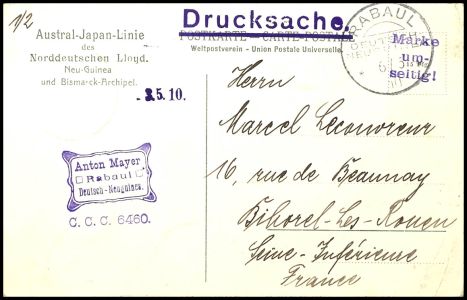 1/2
Drucksache.
Austral-Japan-Linie
des
Norddeutschen Lloyd.
Neu-Guinea
und Bismarck-Archipel.
POSTKARTE — CARTE POSTALE
Weltpostverein - Union Postale Universelle.
RABAUL
Marke
um-
seitig!
5.10.
Anton Mayer
Rabaul
Deutsch-Neuguinea.
C. C. C. 6460.
Herrn
Marcel Lecouvreur
16, rue de Beaunay
Bihorel-Les-Rouen
Seine-Inférieure
France